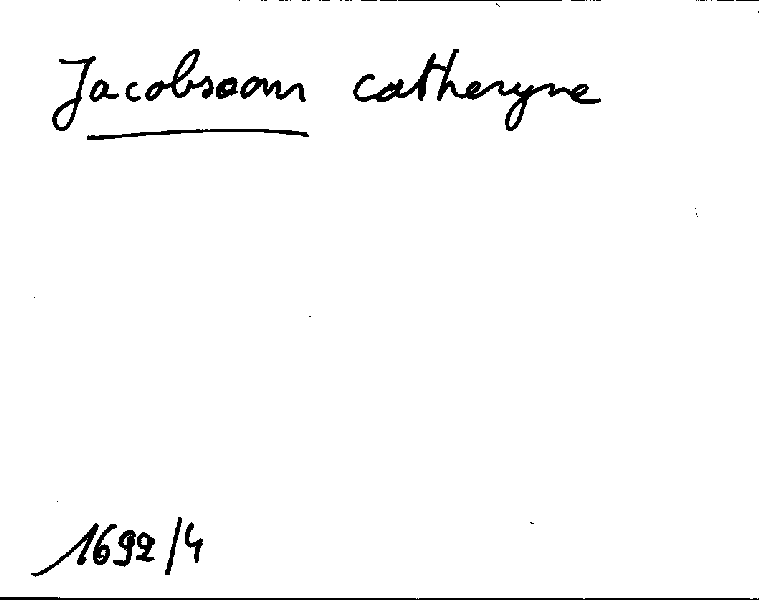 Jacobsoon catheryne
1692/4